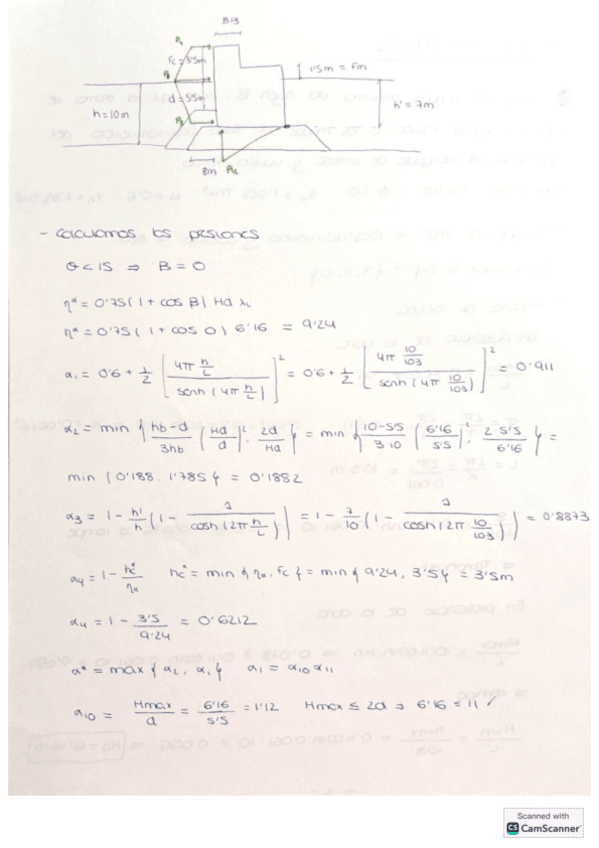 B13
P1
fc = 3'5m
1'5m = Fm
d = 5'5m
h = 10m
h' = 7m
8m
Pu
- Calculamos las presiones
θ < 15 ⇒ B = 0
η* = 0'75 (1 + cos β) Hd λ1
η* = 0'75 (1 + cos 0) 6'16 = 9'24
α1 = 0'6 + 1/2 [ (4π h/L) / (senh (4π h/L)) ]² = 0'6 + 1/2 [ (4π 10/103) / (senh (4π 10/103)) ]² = 0'911
α2 = min { (hb-d)/(3hb) (Hd/d)² , 2d/Hd } = min { (10-5'5)/(3·10) (6'16/5'5)² , (2·5'5)/6'16 } =
min { 0'188 , 1'785 } = 0'1882
α3 = 1 - h'/h (1 - 1/(cosh (2π h/L))) = 1 - 7/10 (1 - 1/(cosh (2π 10/103))) = 0'8873
α4 = 1 - hc*/η* hc* = min { η*, fc } = min { 9'24, 3'5 } = 3'5m
α4 = 1 - 3'5/9'24 = 0'6212
α* = max { α2, α1 } α1 = α10 α11
α10 = Hmax/d = 6'16/5'5 = 1'12 Hmax ≤ 2d ⇒ 6'16 ≤ 11 ✓
Scanned with
CS CamScanner